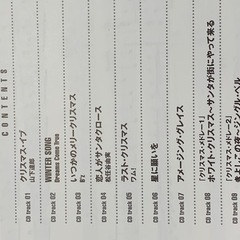 CONTENTS
CD track 01
クリスマス・イブ
山下達郎
CD track 02
WINTER SONG
Dreams Come True
CD track 03
いつかのメリークリスマス
B'z
CD track 04
恋人がサンタクロース
松任谷由実
CD track 05
ラスト・クリスマス
ワム！
CD track 06
星に願いを
CD track 07
アメージング・グレイス
CD track 08
「クリスマス・メドレー1」
ホワイト・クリスマス〜サンタが街にやって来る
CD track 09
「クリスマス・メドレー2」
きよしこの夜〜ジングル・ベル